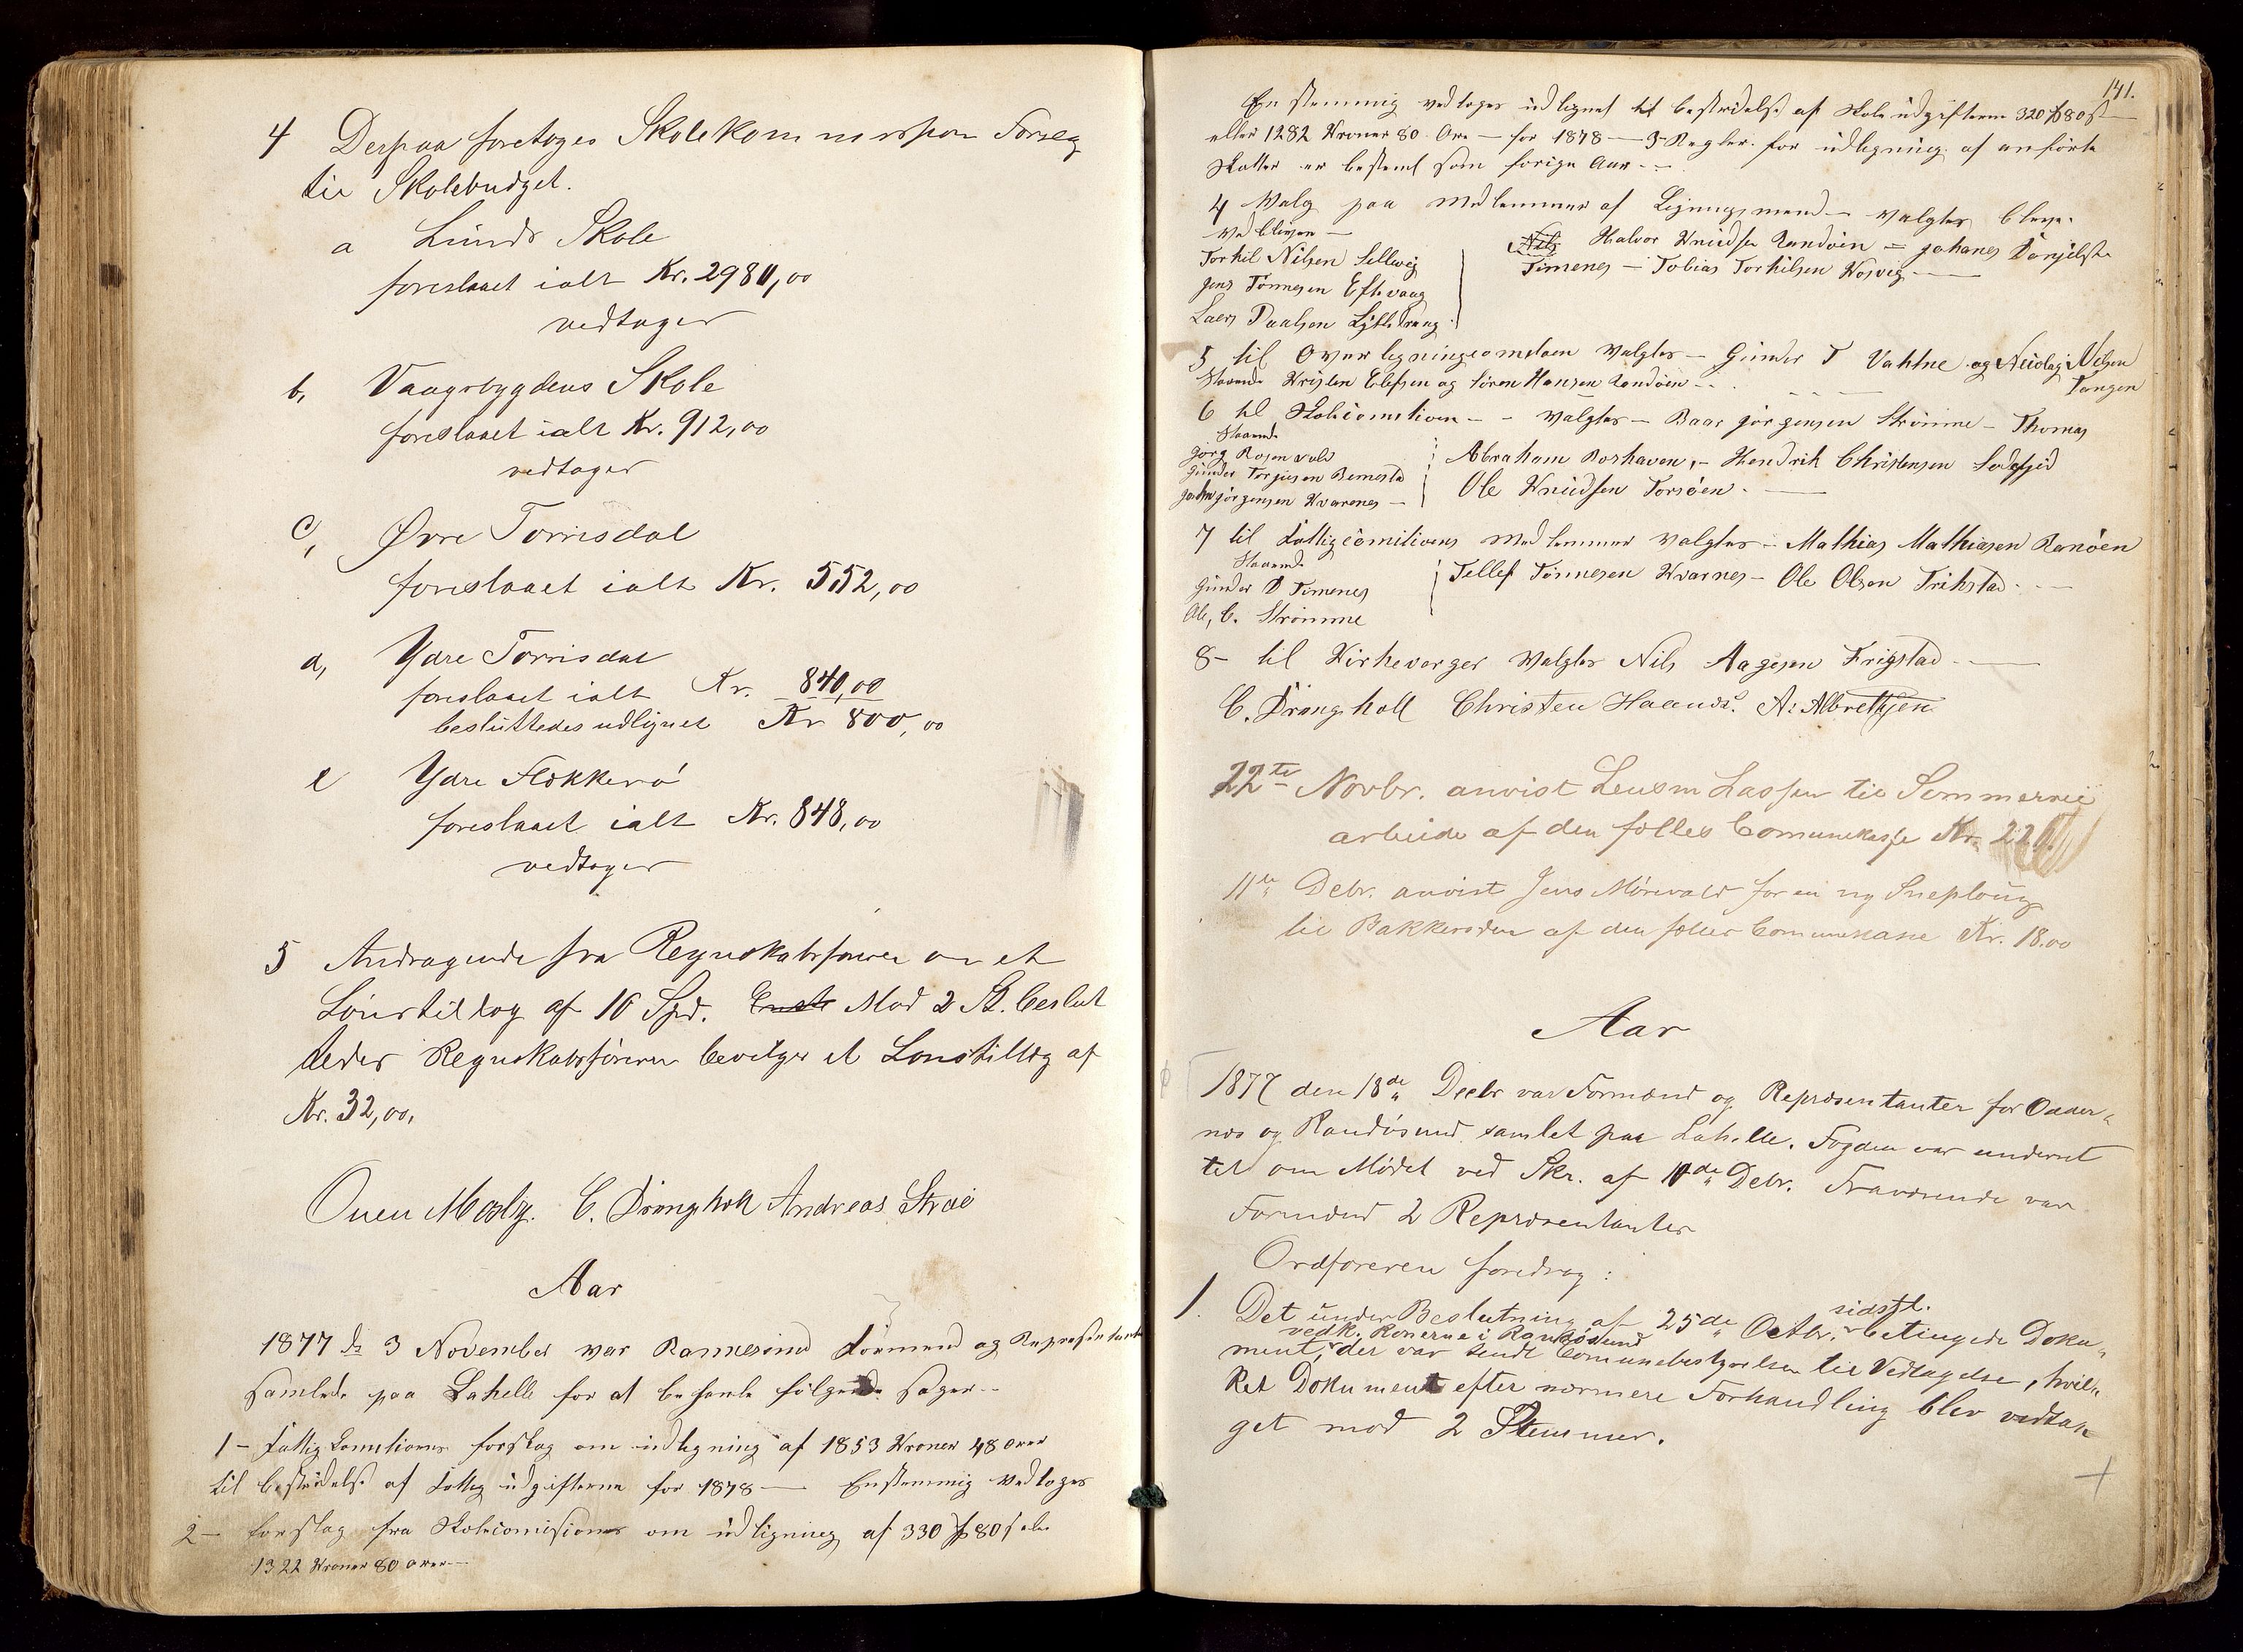 4 Derpaa foretoges Skolekommissson Forslg
til Skolebudget.
a Lunds Skole
foreslaaet ialt Kr. 2980,00
vedtoges
b, Vaagsbygdens Skole
foreslaaet ialt Kr. 912,00
vedtoges
c, Øvre Torrisdal
foreslaaet ialt Kr. 552,00
d, Ydre Torrisdal
foreslaaet ialt Kr. 840,00
besluttedes udlignet Kr 800,00
e Ydre Flekkerø
foreslaaet ialt Kr. 848,00
vedtoges
5 Andragende fra Regnskabsføreren om et
Lønstillæg af 10 Spd. Mod 2 St. beslut
tedes Regnskabsføreren bevilges et Lønstillæg af
Kr. 32,00.
Ouen Mosby. C. Drangholt Andreas Strai
Aar
1877 d. 3 November var Rannesund Formend og Represetant
samlede paa Lahelle for at behanle følgende sager --
1 - Fattig Comitionens forslag om udligning af 1853 Kroner 48 ører
til bestridelse af Fattig udgifterne for 1878 — Enstemmig vedtoges
2 - forslag fra Skolecomisionen om udligning af 330 80 s eler
1322 Kroner 80 ører --
141.
En stemmig vedtoges udlignet til bestridelse af Skole udgifterne 320 80 s —
eller 1282 Kroner 80 Øre — for 1878 — 3 Regler for udligning af anførte
Skatter er bestemt som forige Aar --
4 Valg paa Medlemmer af Ligningsmend — valgtes bleve
Vedbliven —
Nils Halvor Knudsen Randøen = Johanes Danjelsen
Torkil Nilsen Sellevig
Timenes — Tobias Torkilsen Kosvig —
Jens Tønnesen Eftevaag
Laers Paulsen
5 til Over ligningscomitoen valgtes — Gunder T Vahtne og Neidag Nilsen
Tangen
Staaende Kristen Elefsen og Søren Hansen Randøen --
6 til Skolecomitioen -- valgtes — Baar Jørgensen Strømme — Thomas
Staaende
Jørg Rosenvald
Abraham Roshaven, - Hendrik Christensen
Gunder Torjusen Bemestad
Ole Knudsen Torsøen. —
Jørgensen Kvarenes —
7 til Fattigcomitiens Medlemmer valgtes - Mathias Mathiasen Ranøen
Staaende
Tellef Tønnesen Kvarnes - Ole Olsen Frikstad --
Gunder D Timenes
Ole, C. Strømme
8 - til Kirkeverger valgtes Nils Aagesen Frigstad. —
C. Drangholt Christen Haands: A: Albrethsen
22te Novbr. anvist Lensm Lassen til Sommervei
arbeide af den fælles Comunekasse Kr.
11te Debr. anvist Jens Mörevald for en ny Sneploug
til Bakkeroden af den fælles Comunekasse Kr. 18.00
Aar
1877 den 18de Decbr var Formænd og Repræsentanter for Odder-
næs og Randøsund samlet paa Lahelle. Fogden var underret
tet om Mødet ved Skr. af 10de Debr. Fraværende var
Formænd 2 Repræsentanter
Ordføreren foredrog:
1. Det under Beslutning af 25de Octbr. sidstl. betingede Doku-
ment, vedk. Konerne i Randøsund der var sendt Comunebestyrelsen til Vedtagelse, hvil-
ket Dokument efter nærmere Forhandling blev vedta-
get mod 2 Stemmer.